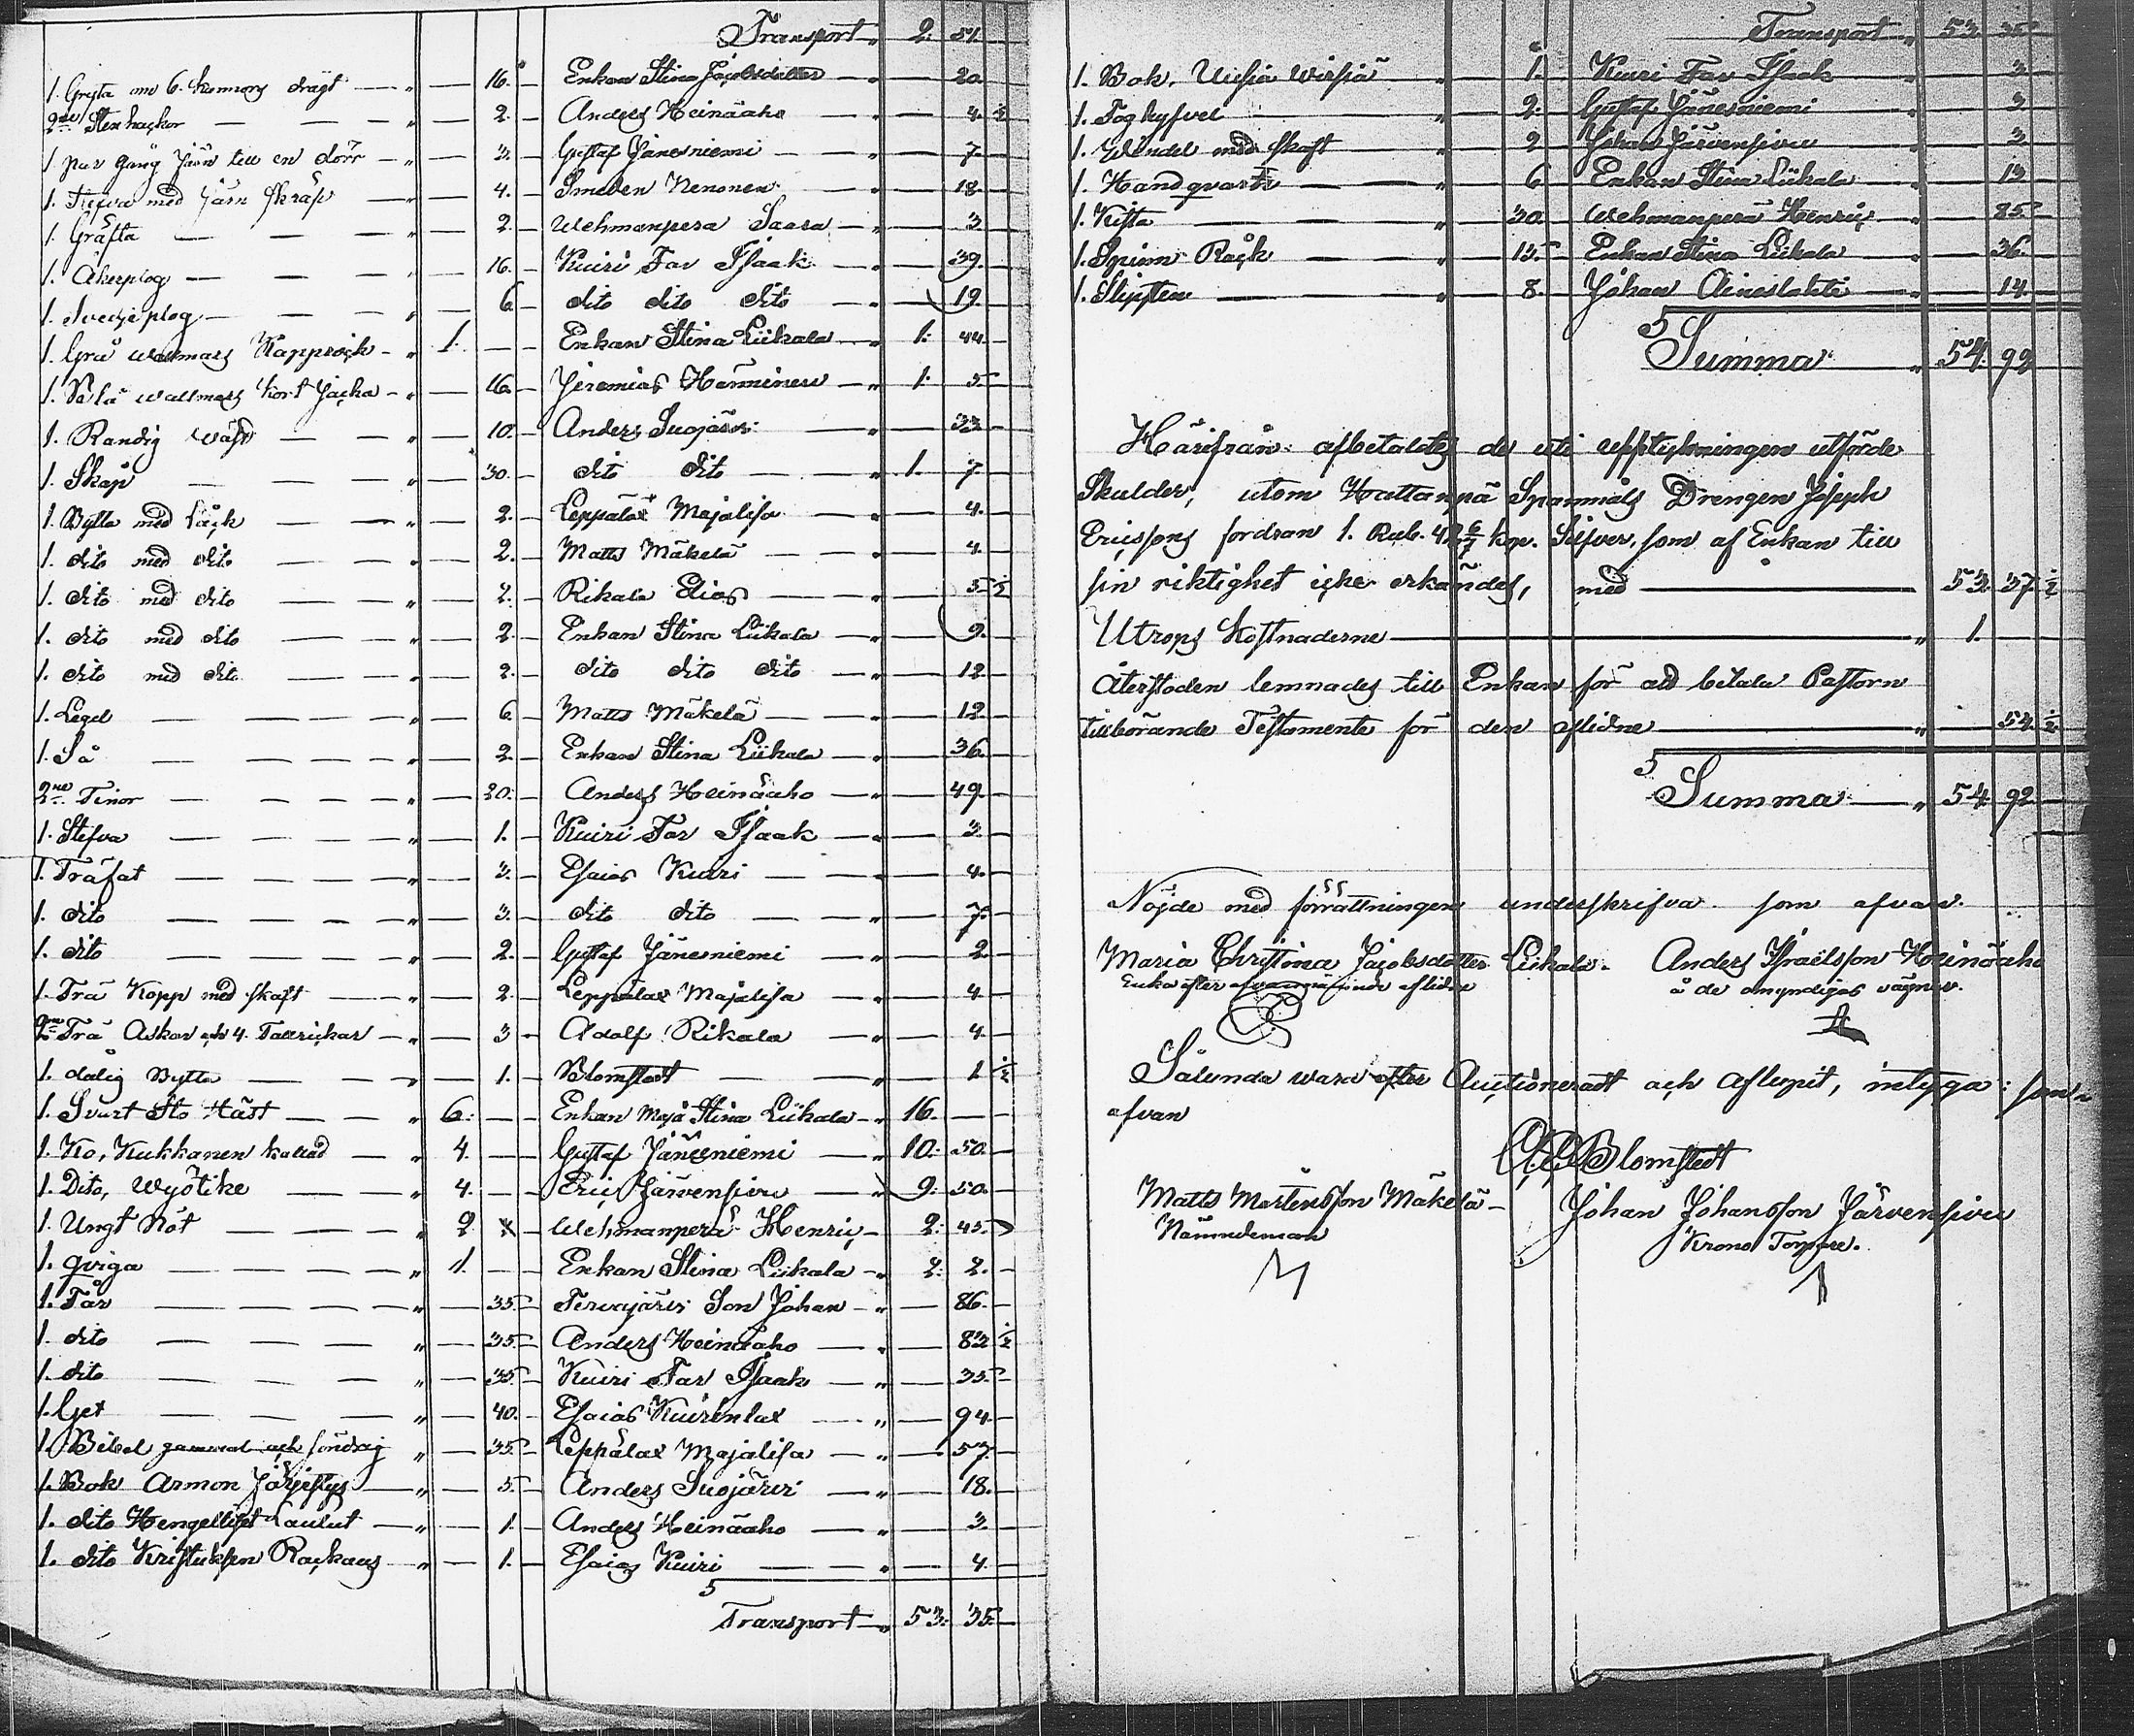 Transport " 2. 51.
1. Gryta om 6. kannors drägt " — 16. — Enkan Stina Jacobsdotter " — 20. —
2ne Stenhackor " — 2. — Anders Heinäaho " — 4. ½
1. par gång Järn till en dörr " — 3. — Gustaf Jänesniemi " — 7. —
1. Stefva med Järn skräp " — 4. — Smeden Nenonen " — 18. —
1. Gräfta " — 2. — Wehmanpera Saara " — 3 —
1. Åkerplog " — 16. — Kuiri Far Isaak " — 39. —
1. Svedjeplog " — 6. — dito dito dito " — 19. —
1. Grå wallmars Kapprock " 1. — — Enkan Stina Liikala " 1. 44. —
1. Blå wallmars kort Jacka " — 16. — Jeremias Hänninen " 1. 5. —
1. Randig wäst " — 10. — Anders Suojärvi " — 33. —
1. Skåp " — 30. — dito dito " 1. 7 —
1. Bytta med Låck " — 2. — Leppälax Majalisa " — 4. —
1. dito med dito " — 2. — Matts Mäkelä " — 4. —
1. dito med dito " — 2. — Rikala Elias " — 5. ½
1. dito med dito " — 2. — Enkan Stina Liikala " — 9. —
1. dito med dito " — 2. — dito dito dito " — 12. —
1. Legel " — 6. — Matts Mäkelä " — 12. —
1. Så " — 2. — Enkan Stina Liikala " — 36. —
2ne Tinor " — 20. — Anders Heinäaho " — 49. —
1. Stefva " — 1. — Kuiri Far Isaak " — 3. —
1. Träfat " — 3. — Esaias Kuiri " — 4. —
1. dito " — 3. — dito dito " — 7. —
1. dito " — 2. — Gustaf Jänesniemi " — 2. —
1. Trä Kopp med skaft " — 2. — Leppälax Majalisa " — 4. —
2ne Trä Askar och 4. Tallrickar " — 3 — Adolf Rikala " — 4. —
1. dålig Bytta " — 1. — Blomstedt " — 1 ½
1. Svart Sto Häst " 6. — — Enkan Maja Stina Liikala " 16. — —
1. Ko, Kukkanen kallad " 4. — — Gustaf Jänesniemi " 10. 50. —
1. Dito, Wyötike " 4. — — Eric Järvensivu " 9. 50. —
1. Ungt Nöt " 2 — Wehmanperä Henric " 2. 45. —
1. Qviga " 1. — — Enkan Stina Liikala " 2. 2. —
1. Får " — 35. — Tervajärvi Son Johan " — 86. —
1. dito " — 35. — Anders Heinäaho " — 82 ½
1. dito " — 35. — Kuiri Far Isaak " — 35. —
1. Get " — 40. — Esaias Kuirinlax " — 94. —
1. Bibel gammal och söndrig " — 35. — Leppälax Majalisa " — 57. —
1. Bok Armon Järjestys " — 5. — Anders Suojärvi " — 18. —
1. dito Hengelliset Laulut " — 1. — Anders Heinäaho " — 3. —
1. dito Kristuksen Rackaus " — 1. — Esaias Kuiri " — 4. —
Transport " 53. 35. —
Transport " 53. 35.
1. Bok, Uusia Wirsiä " 1. Kuiri Far Isaak 3
1. Taghyfvel " 2. Gustaf Jänesniemi 3.
1. Windel med skaft " 2 Johan Järvensivu 3
1. Handqvarn " 6 Enkan Stina Liikala 13
1. Kista " 30. Wehmanperä Henric 85.
1. Spinn Råck " 15. Enkan Stina Liikala 36.
1. Slipsten " 8. Johan 14.
Summa " 54. 92
Härifrån afbetaltes de uti uppteckningen utförde
Skulder, utom Spannmåls Drengen Joseph
Ericssons fordran 1. Rub. 42 6/7 kop. Silfver, som af Enkan till
sin riktighet icke erkändes, med — 53. 37. ½
Utrops kostnaderne — " 1. —
Återstoden lemnades till Enkan för att betala Pastorn
tillhörande Testamente för den aflidne — " 54. ½
Summa " 54 92
Nöjde med förrättningen underskrifva som ofvan.
Maria Christina Jacobsdotter Liikala. Anders Israelsson Heinäaho
Enka efter aflidne å de omyndigas vägnar.
Sålunda wara Auctioneradt och aflupit, intyga: som
ofvan
Blomstedt
Matts Mårtensson Mäkelä Johan Johansson Järvensivu
Nämndeman Krono Torpare.